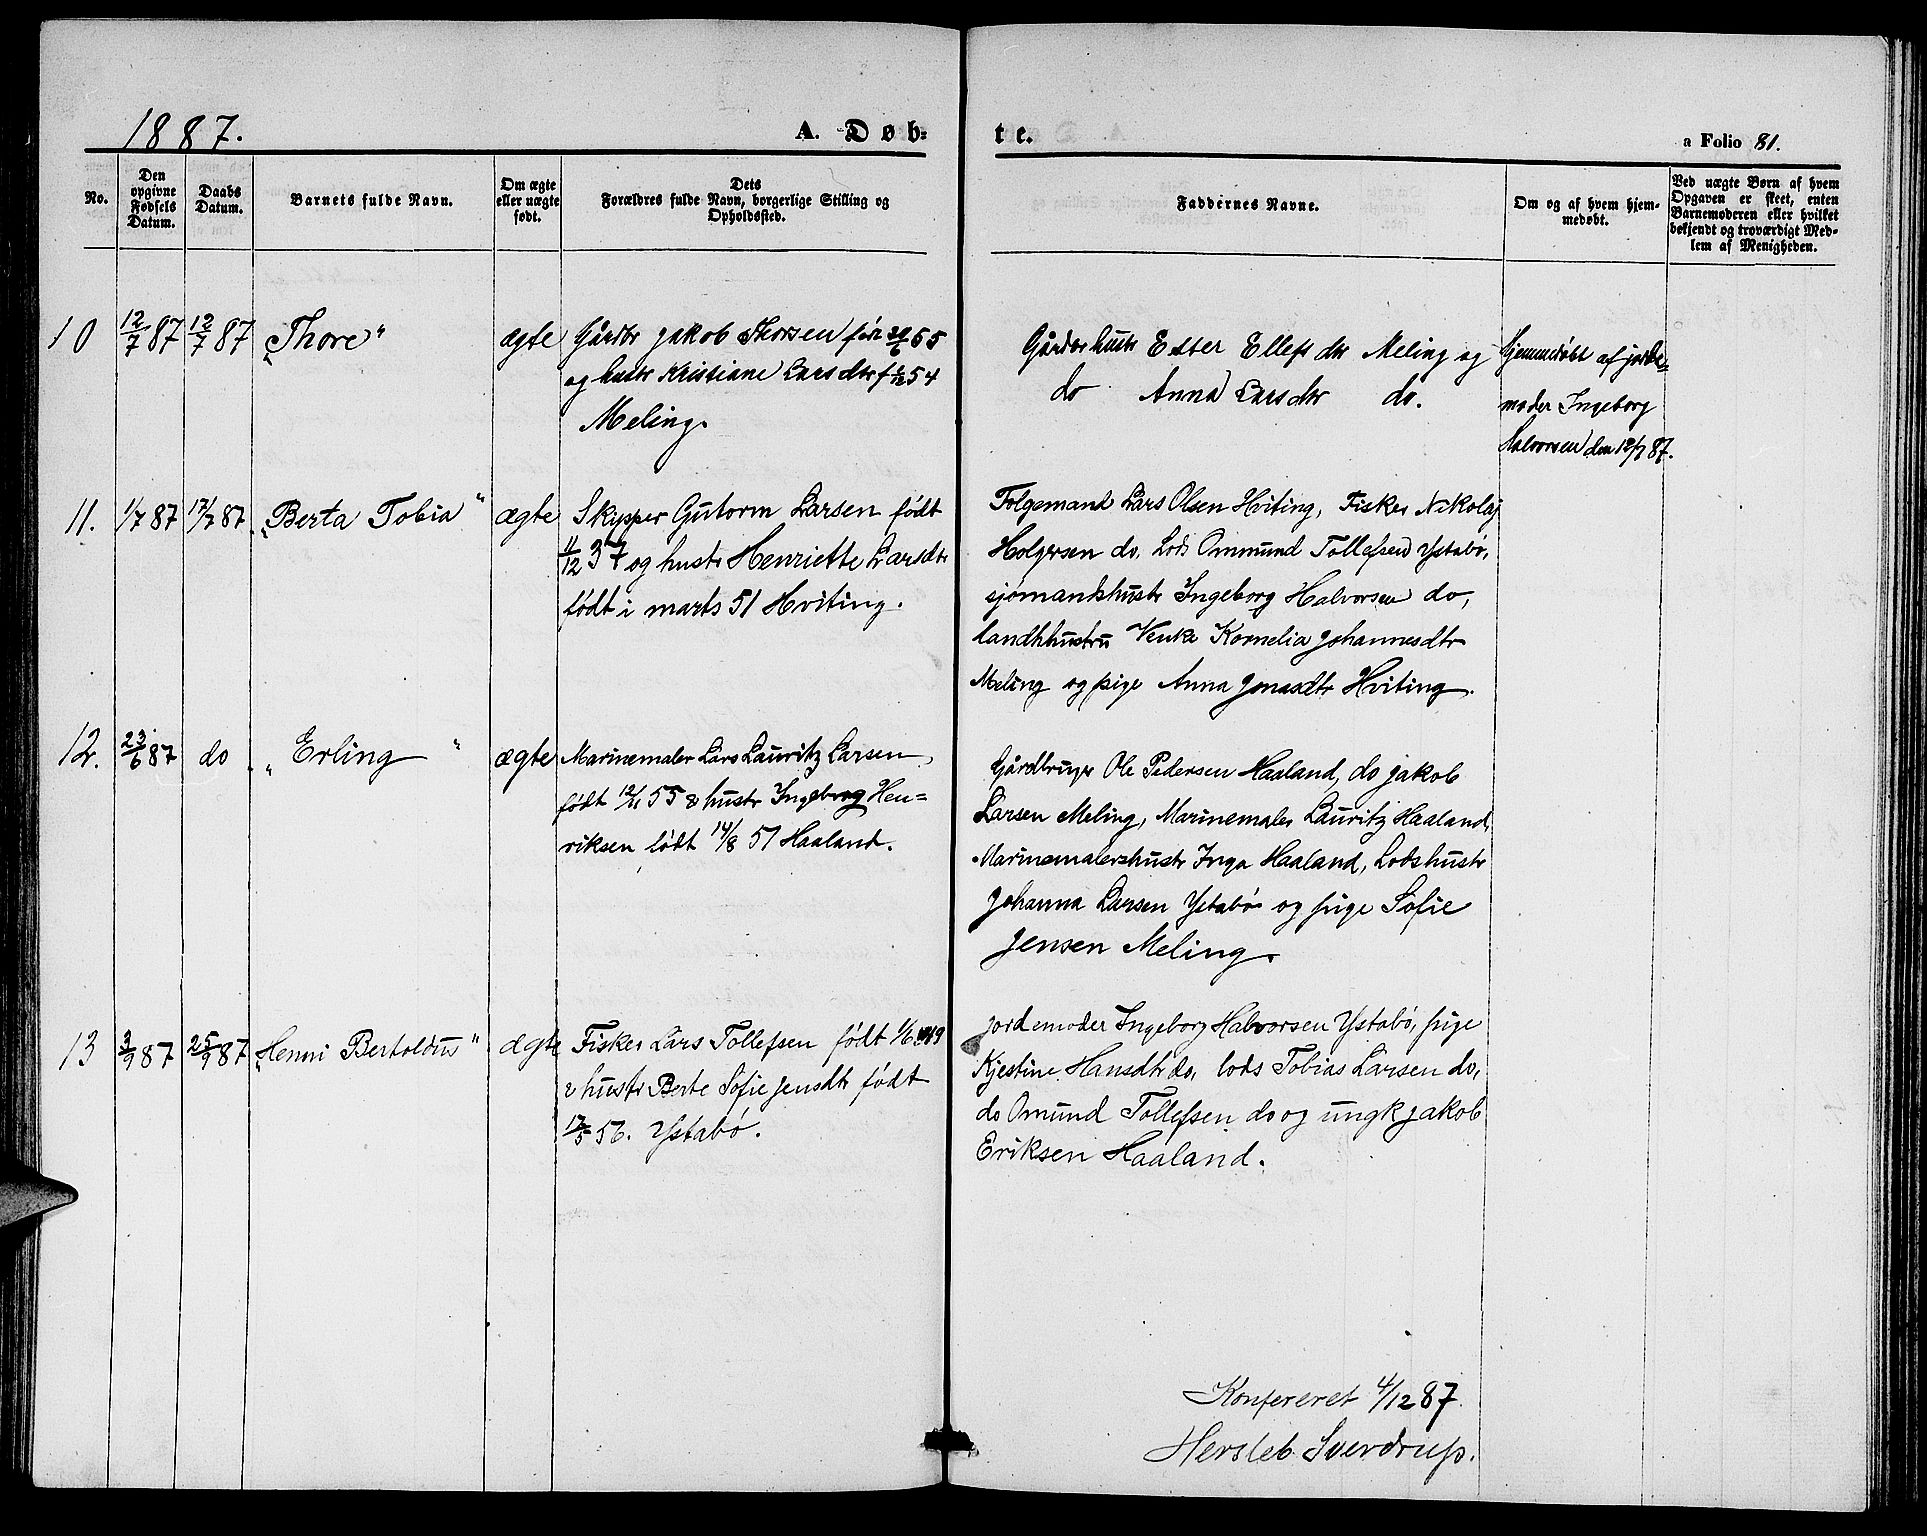 1887.
A. Døb=
te.
a Folio 81.
No.
Den opgivne Fødsels Datum.
Daabs Datum.
Barnets fulde Navn.
Om ægte eller uægte født.
Dets Forældres fulde Navn, borgerlige Stilling og Opholdssted.
Faddernes Navne.
Om og af hvem hjemmedøbt.
Ved uægte Børn af hvem Opgaven er skeet, enten Barnemoderen eller hvilket bekjendt og troværdigt Medlem af Menigheden.
10 12/7 87 12/7 87 „Thore" ægte Gårdbr jakob Thorsen 55
og hustr Kristiane Larsdtr f 54
Meling.
Gårdbrhustr Ester Ellefsdtr Meling og
do Anna Larsdtr do.
Hjemmedøbt af jorde-
moder Ingeborg
Halvorsen den 12/7 87.
11. 1/7 87 17/7 87 „Berta Tobia" ægte Skypper Gutorm Larsen født
11/12 37 og hustr Henriette Larsdtr
født i marts 51 Hviting.
Folgemand Lars Olsen Hviting, Fisker Nikolaj
Holgersen do, Lods Ommund Tollefsen Ystabø,
sjømandshustr Ingeborg Halvorsen do,
landhhustru Venke Kornelia Johannesdtr
Meling og pige Anna Jonasdtr Hviting.
12. 23/6 87 do „Erling" ægte Marinemaler Lars Lauritz Larsen,
født 12/1 55 & hustr Ingeborg Hen=
riksen født 14/8 57 Haaland.
Gårdbruger Ole Pedersen Haaland, do jakob
Larsen Meling, Marinemaler Lauritz Haaland,
Marinemalershustr Inga Haaland, Lodshustr
Johanna Larsen Ystabø og pige Sofie
Jensen Meling.
13 3/9 87 25/9 87 „Henni Bertoldus" ægte Fisker Lars Tollefsen født 1/6 49
& hustr Berte Sofie jensdtr født
17/5 56. Ystabø.
jordemoder Ingeborg Halvorsen Ystabø, pige
Kjestine Hansdtr do, lods Tobias Larsen do,
do Omund Tollefsen do og ungk jakob
Eriksen Haaland.
Konfereret 4/12 87.
Hersleb Sverdrup.